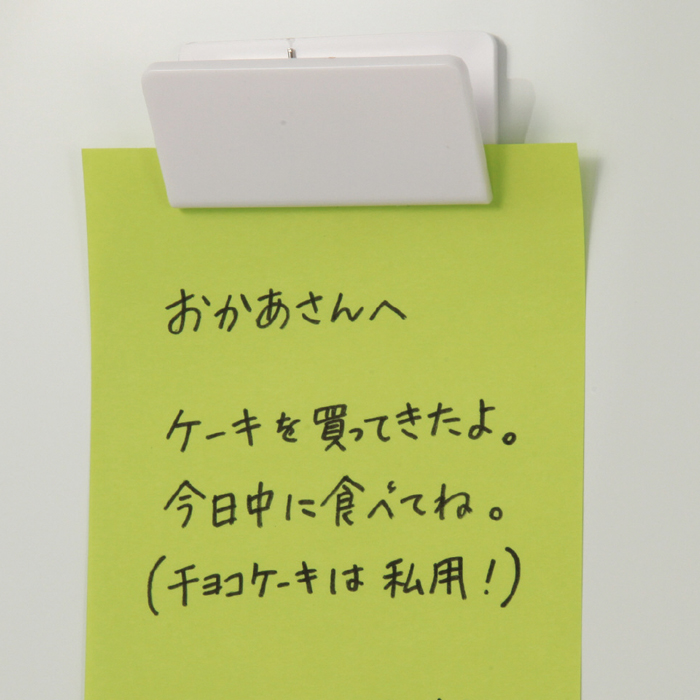 おかあさんへ
ケーキを買ってきたよ。
今日中に食べてね。
(チョコケーキは私用！)